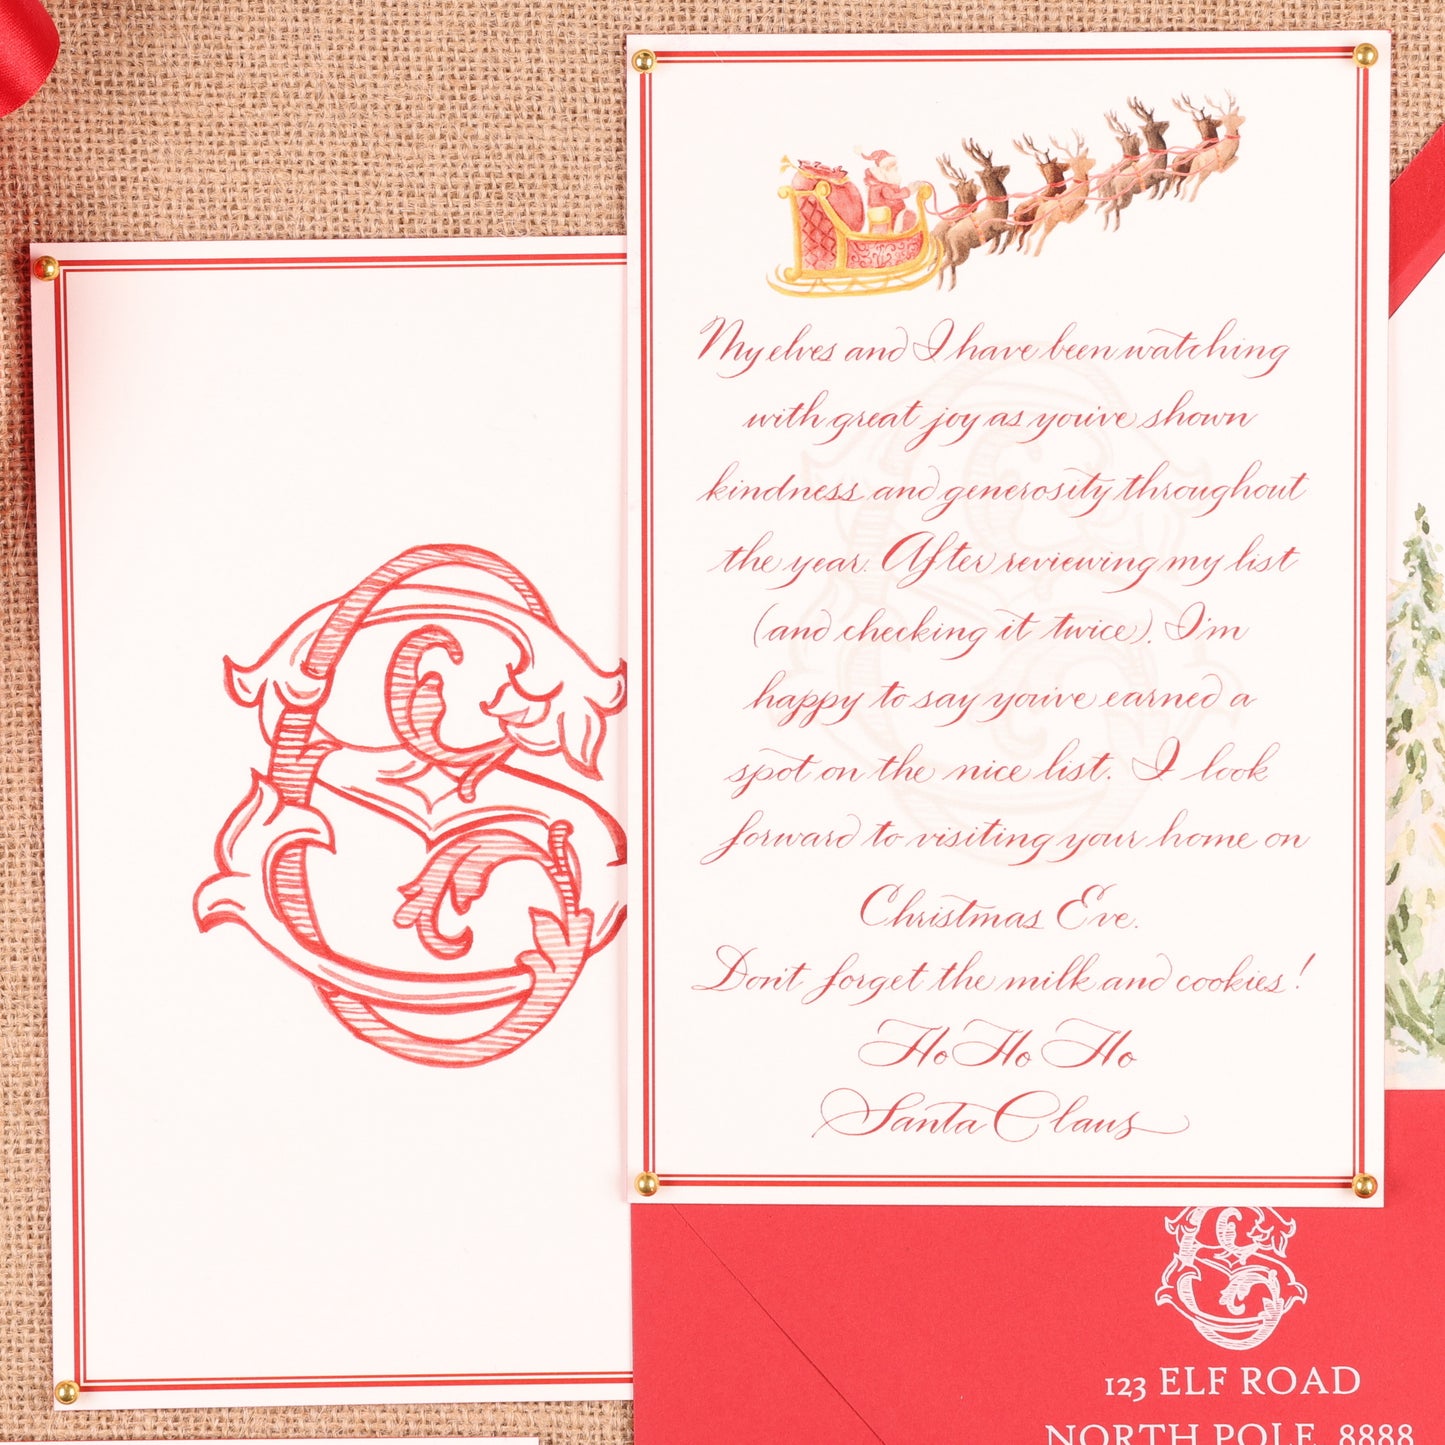 My elves and I have been watching
with great joy as you've shown
kindness and generosity throughout
the year. After reviewing my list
(and checking it twice), I'm
happy to say you've earned a
spot on the nice list. I look
forward to visiting your home on
Christmas Eve.
Don't forget the milk and cookies!
Ho Ho Ho
Santa Claus
123 ELF ROAD
NORTH POLE, 8888